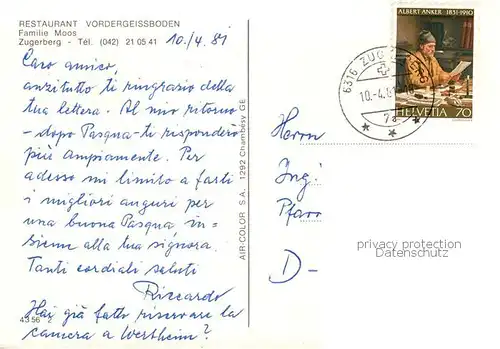 RESTAURANT VORDERGEISSBODEN
Familie Moos
Zugerberg - Tél. (042) 21 05 41
10./4.81
Caro amico,
anzitutto ti ringrazio della
tua lettera. Al mio ritorno
- dopo Pasqua - ti risponderò
più ampiamente. Per
adesso mi limito a farti
i migliori auguri per
una buona Pasqua, in-
sieme alla tua signora.
Tanti cordiali saluti
Riccardo
Hai già fatto riservare la
camera a Wertheim?
4356 2
AIR-COLOR S.A. 1292 Chambésy GE
ALBERT ANKER · 1831-1910
HELVETIA 70
6316 ZUG
10.-4.81
Herrn
Ing.
Pfarr
D-
privacy protection
Datenschutz